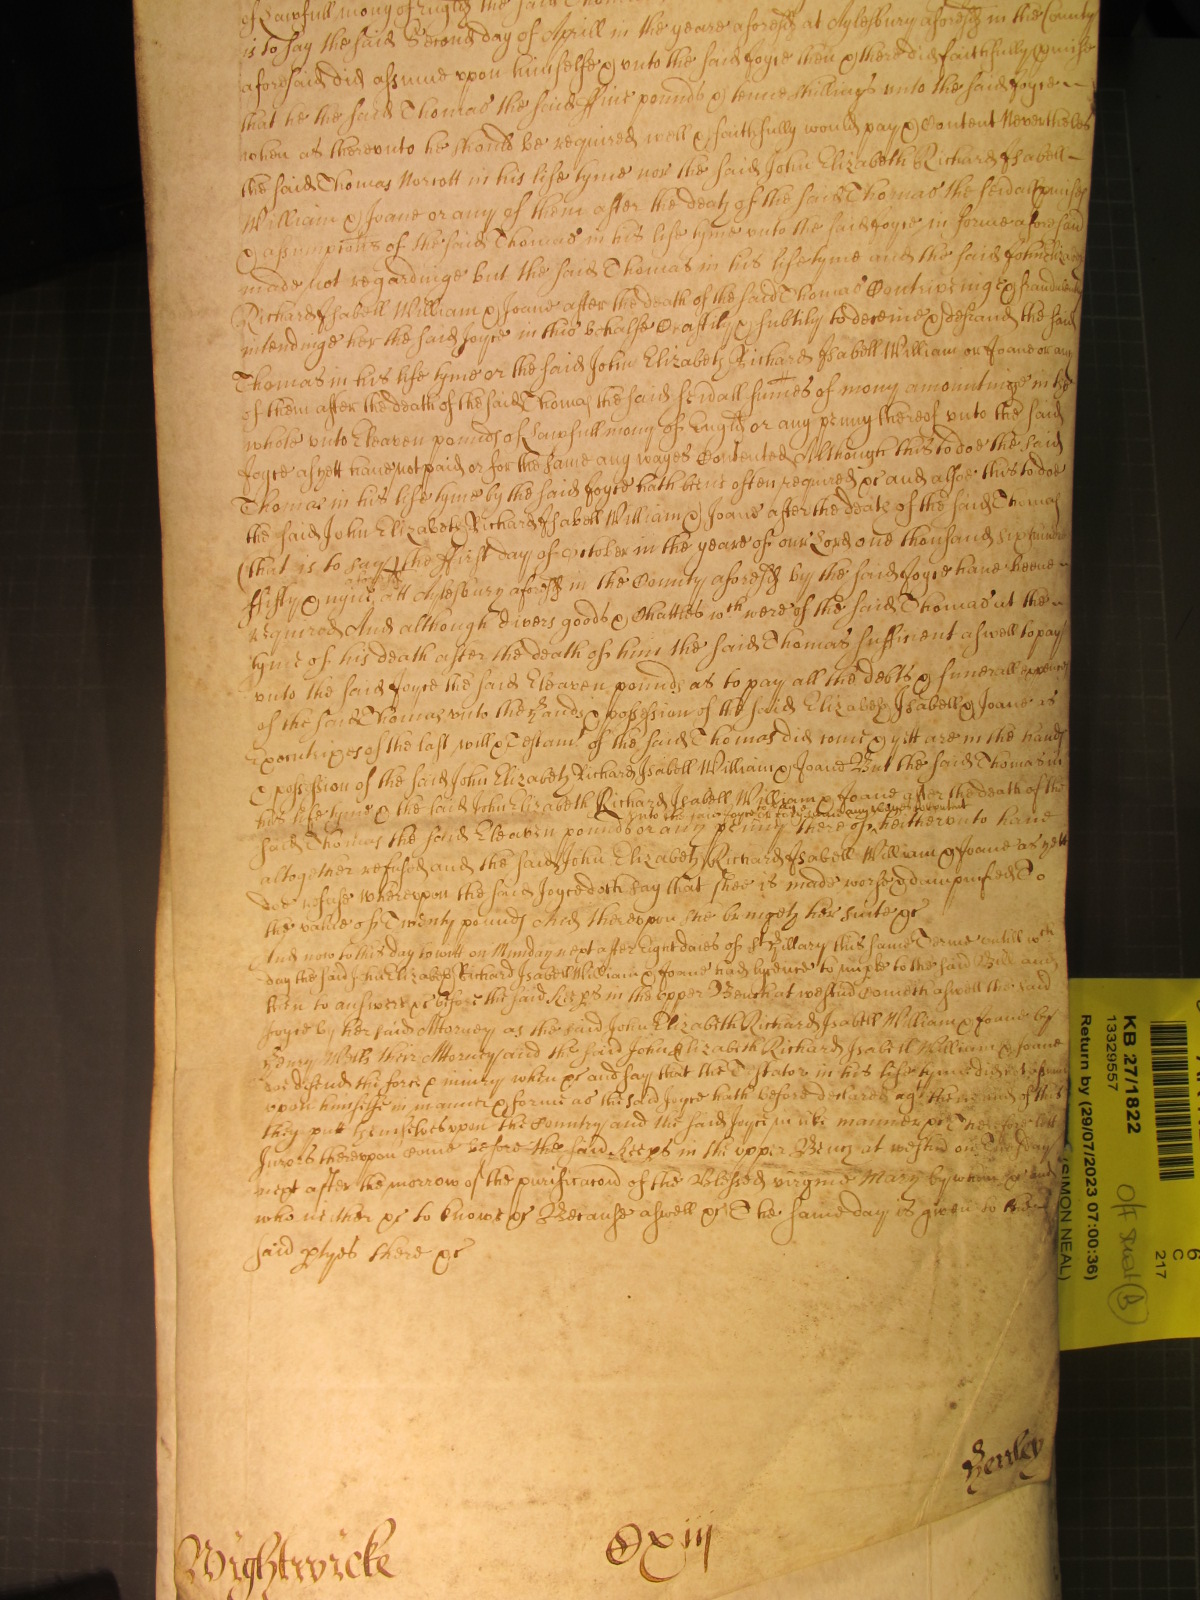 of Lawfull mony of Engld the said Thomas
is to say the said Second day of Aprill in the yeare aforesd at Aylesbury aforesd in the County
aforesaid did assume vpon himselfe & vnto the said Joyce then & there did faithfully pmise
that he the said Thomas the said ffive pounds & tenne shillings vnto the said Joyce
when as therevnto he should be required well & faithfully would pay & Content Neverthelesse
the said Thomas Norcott in his life tyme nor the said John Elizabeth Richard Isabell
William & Joane or any of them after the death of the said Thomas the sevall pmises
& assumptions of the said Thomas in his life tyme vnto the said Joyce in forme aforesaid
made not regardinge but the said Thomas in his life tyme and the said John Elizabeth
Richard Isabell William & Joane after the death of the said Thomas Contriveinge & fraudulently
intendinge her the said Joyce in this behalfe Craftily & subtilly to deceive & defraud the said
Thomas in his life tyme or the said John Elizabeth Richard Isabell William or Joane or any
of them after the death of the said Thomas the said sevall summes of mony amountinge in the
whole vnto Eleaven pounds of Lawfull mony of Engld or any penny thereof vnto the said
Joyce as yett have not paid or for the same any wayes Contented Although this to doe the said
Thomas in his life tyme by the said Joyce hath beene often required &c and alsoe this to doe
the said John Elizabeth Richard Isabell William & Joane after the death of the said Thomas
(that is to say) the ffirst day of October in the yeare of our Lord one thousand six hundred
ffifty & nyne att Aylesbury aforesd in the County aforesd by the said Joyce have beene
required And although divers goods & Chattles wch were of the said Thomas at the
tyme of his death after the death of him the said Thomas sufficient aswell to pay
vnto the said Joyce the said Eleaven pounds as to pay all the debts & funerall expences
of the said Thomas vnto the hands & possession of the said Elizabeth Isabell & Joane as
Executrixes of the last will & Testamt of the said Thomas did come & yett are in the hands
& possession of the said John Elizabeth Richard Isabell William & Joane But the said Thomas in
his life tyme & the said John Elizabeth Richard Isabell William & Joane after the death of the
vnto the said Joyce to
said Thomas the said Eleaven pounds or any penny thereof hitherunto have
altogether refused and the said John Elizabeth Richard Isabell William & Joane as yett
doe refuse Wherevpon the said Joyce doth say that shee is made worse & dampnified To
the value of Twenty pounds And therevpon she bringeth her suite &c
And now to this day to witt on Munday next after Eight daies of St Hillary this same Terme vntill wch
day the said John Elizabeth Richard Isabell William & Joane had lycence to imple to the said Bill and
then to answere &c before the said Keeps in the vpper Bench at westmd cometh aswell the said
Joyce by her said Attorney as the said John Elizabeth Richard Isabell William & Joane by
their Attorney and the said John Elizabeth Richard Isabell William & Joane
doe defend the force & iniury when &c and say that the Testator in his life tyme did not assume
vpon himselfe in manner & forme as the said Joyce hath before declared agt them and of this
they putt themselves vpon the Country and the said Joyce in like manner &c Therefore lett
Jurors therevpon come before the said Keeps in the vpper Bench at westmd on Tuesday
next after the morrow of the purificacon of the Blessed virgine Mary by whom &c and
who neither &c to knowe &c Because aswell &c The same day is given to the
said ptyes there &c
Henley
Wightwicke
Oxiij
KB 27/1822
13329557
Return by (29/07/2023 07:00:36)
(SIMON NEAL)
6
C
217